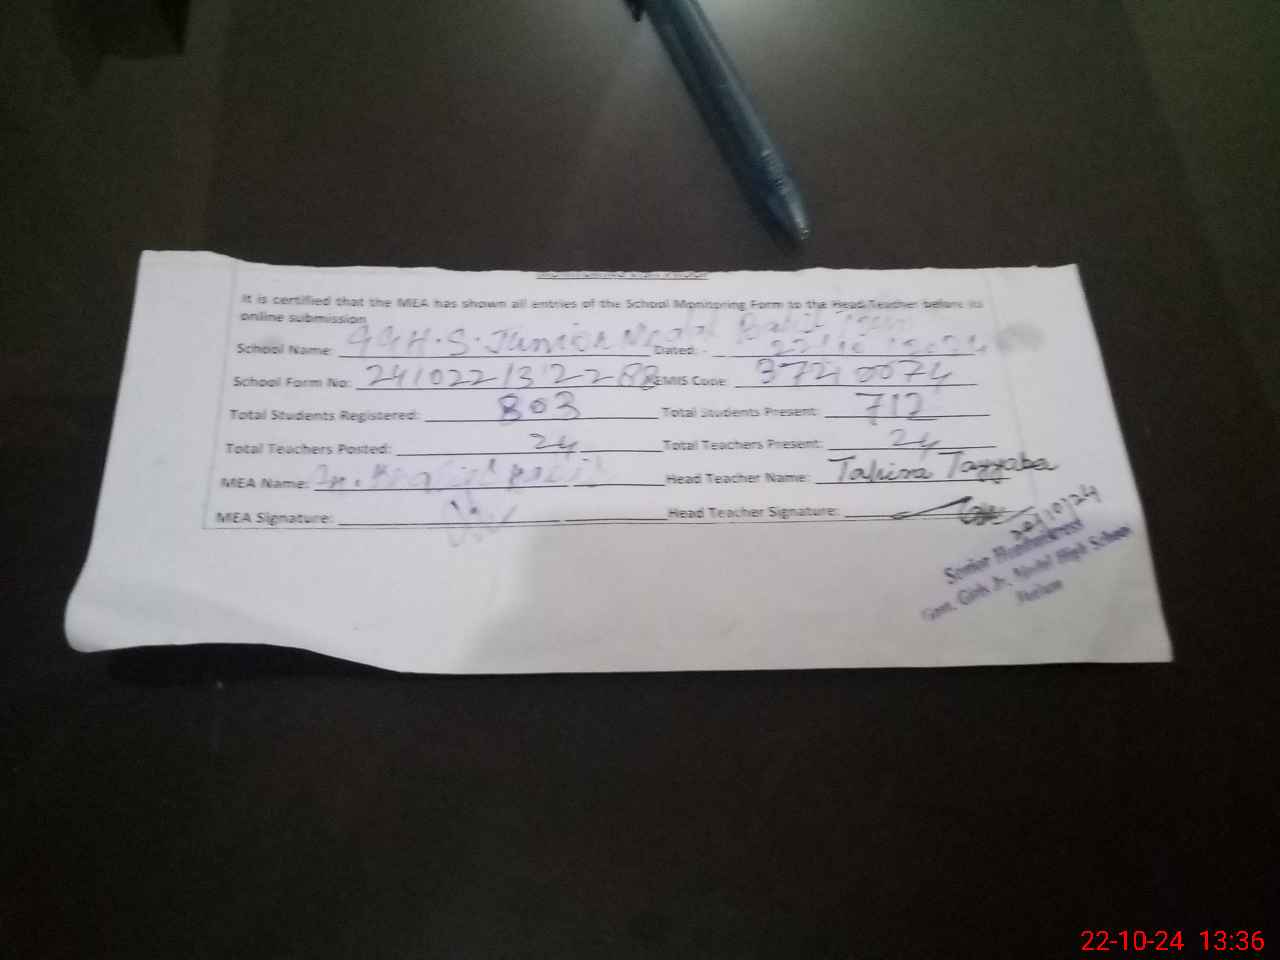 MONITORING VISIT PROOF
It is certified that the MEA has shown all entries of the School Monitoring Form to the Head Teacher before its
online submission
School Name: G.G.H.S. Junior Model Dated: - 22/10/2024
School Form No: EMIS Code: 37210074
Total Students Registered: 803 Total Students Present: 712
Total Teachers Posted: 24 Total Teachers Present: 24
MEA Name: Head Teacher Name: Tahira Tayyaba
MEA Signature: Head Teacher Signature:
Senior Headmistress
Govt. Girls Jr. Model High School
22-10-24 13:36